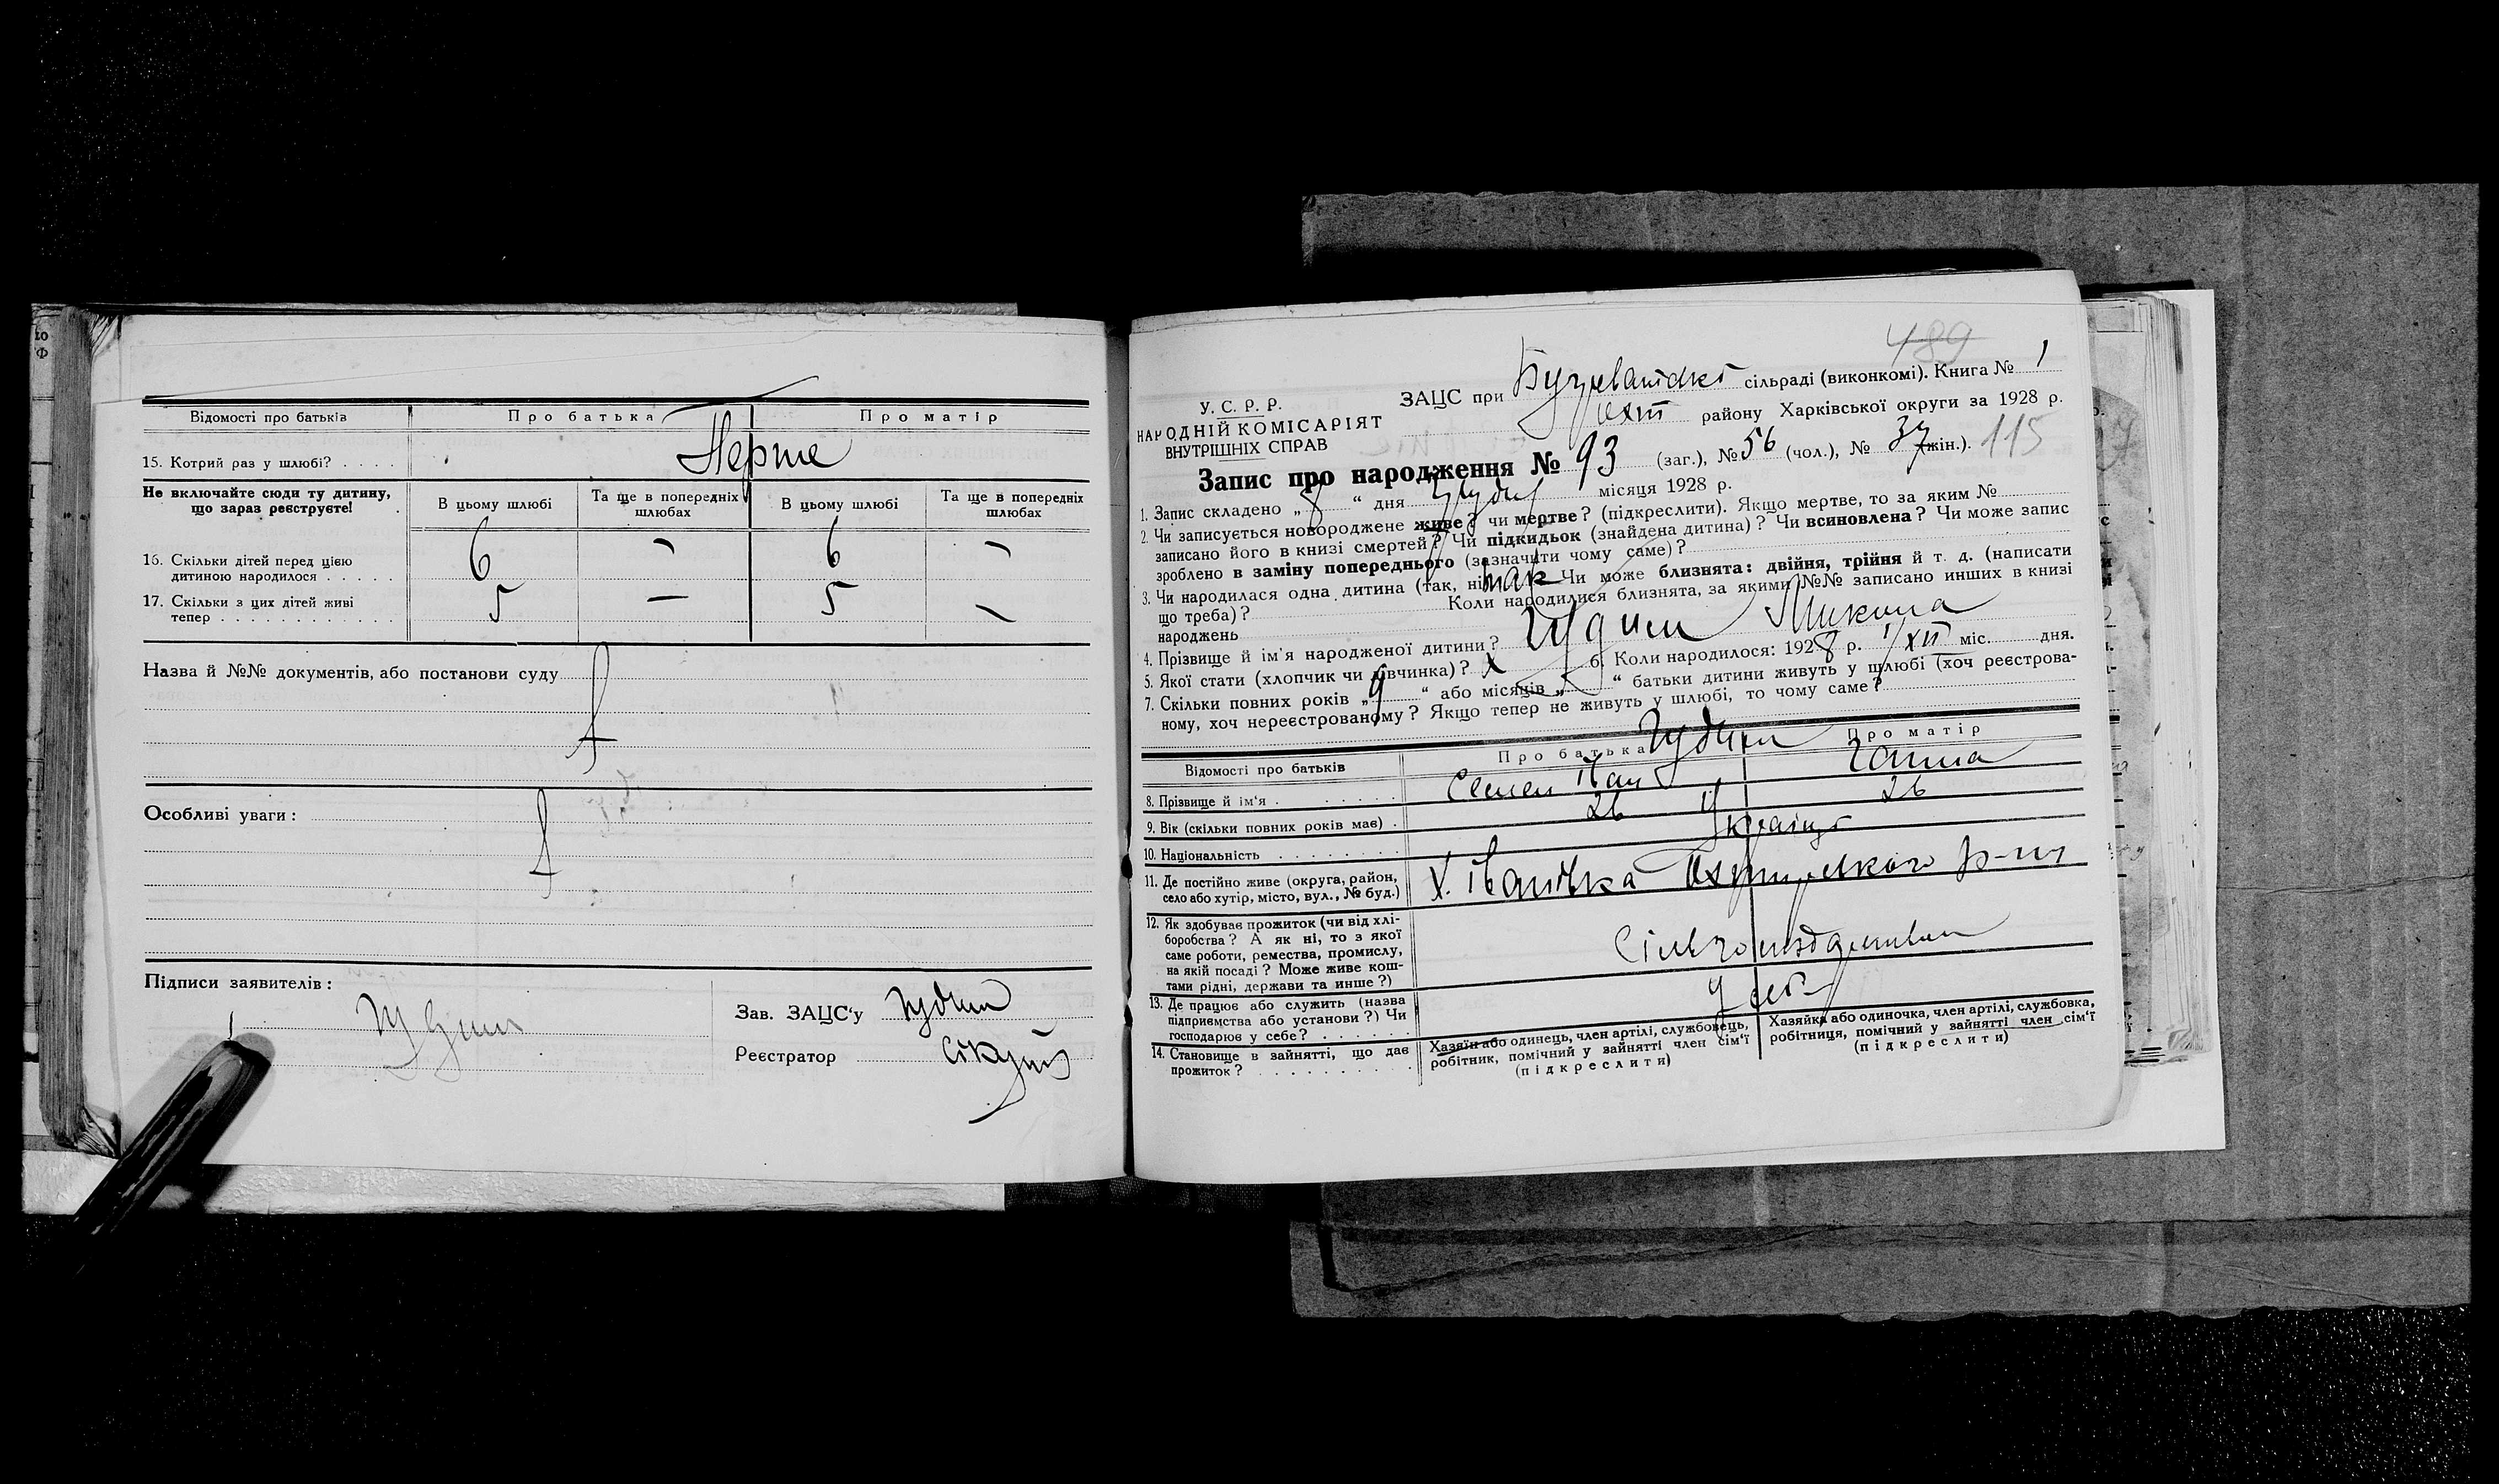 Відомості про батьків
Про батька
Про матір
15. Котрий раз у шлюбі? . . . .
Перше
Не включайте сюди ту дитину, що зараз реєструєте!
В цьому шлюбі
Та ще в попередніх шлюбах
В цьому шлюбі
Та ще в попередніх шлюбах
16. Скільки дітей перед цією
дитиною народилося . . . . .
6 — 6 —
17. Скільки з цих дітей живі
тепер . . . . . . . . . . . .
5 — 5 —
Назва й №№ документів, або постанови суду
Особливі уваги :
Підписи заявителів :
Зав. ЗАЦС'у
Реєстратор
489
У. С. Р. Р.
НАРОДНІЙ КОМІСАРІЯТ
ВНУТРІШНІХ СПРАВ
ЗАЦС при сільраді (виконкомі). Книга № 1
району Харківської округи за 1928 р.
Запис про народження № 93 (заг.), № 56 (чол.), № 37 (жін.).
115
1. Запис складено „ 8 “ дня Грудня місяця 1928 р.
2. Чи записується новороджене живе? чи мертве? (підкреслити). Якщо мертве, то за яким №
записано його в книзі смертей? Чи підкидьок (знайдена дитина)? Чи всиновлена? Чи може запис
зроблено в заміну попереднього (зазначити чому саме)?
3. Чи народилася одна дитина (так, ні) так Чи може близнята: двійня, трійня й т. д. (написати
що треба)? Коли народилися близнята, за якими №№ записано инших в книзі
народжень
4. Прізвище й ім'я народженої дитини? Гудим Микола
5. Якої стати (хлопчик чи дівчинка)? х 6. Коли народилося: 1928 р. 1/XII міс. дня.
7. Скільки повних років „ 9 “ або місяців „ “ батьки дитини живуть у шлюбі (хоч реєстрова-
ному, хоч нереєстрованому? Якщо тепер не живуть у шлюбі, то чому саме?
Відомості про батьків
Про батька
Про матір
Гудим
8. Прізвище й ім'я . . . . . . .
Семен Іван
Ганна
9. Вік (скільки повних років має) .
26
26
10. Національність . . . . . . . .
Українці
11. Де постійно живе (округа, район,
село або хутір, місто, вул., № буд.)
Х. Іванівка р-ну
12. Як здобуває прожиток (чи від хлі-
боробства? А як ні, то з якої
саме роботи, ремества, промислу,
на якій посаді? Може живе кош-
тами рідні, держави та инше?)
13. Де працює або служить (назва
підприємства або установи?) Чи
господарює у себе? . . . . . .
У себе
14. Становище в зайнятті, що дає
прожиток? . . . . . . . . . .
Хазяїн або одинець, член артілі, службовець,
робітник, помічний у зайнятті член сім'ї
(підкреслити)
Хазяйка або одиночка, член артілі, службовка,
робітниця, помічний у зайнятті член сім'ї
(підкреслити)